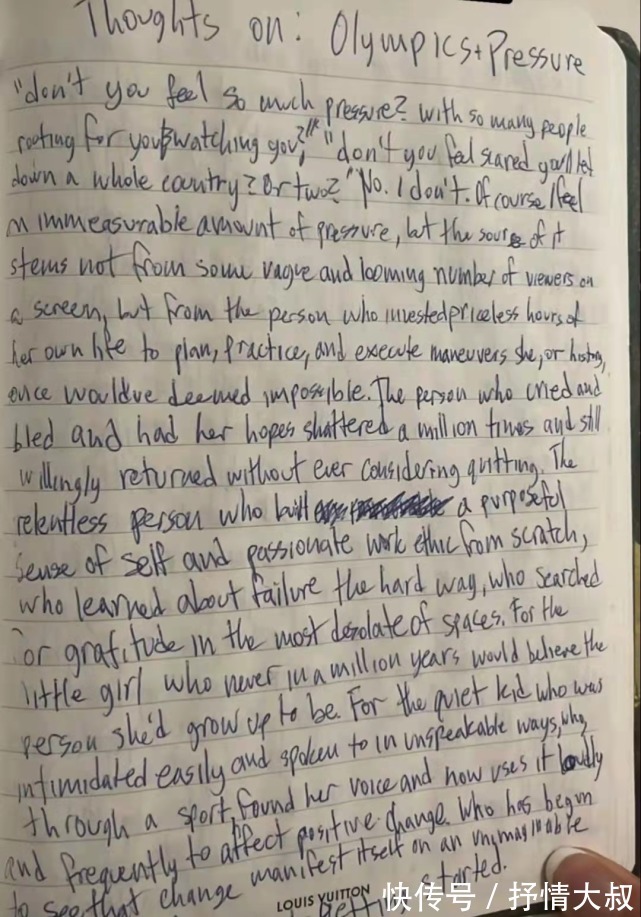 Thoughts on: Olympics+Pressure
"don't you feel so much pressure? with so many people
rooting for you & watching you?" "don't you feel scared you'll let
down a whole country? Or two?" No. I don't. Of course I feel
an immeasurable amount of pressure, but the source of it
stems not from some vague and looming number of viewers on
a screen, but from the person who invested priceless hours of
her own life to plan, practice, and execute maneuvers she, or history,
once would've deemed impossible. The person who cried and
bled and had her hopes shattered a million times and still
willingly returned without ever considering quitting. The
relentless person who built a purposeful
sense of self and passionate work ethic from scratch,
who learned about failure the hard way, who searched
for gratitude in the most desolate of spaces. For the
little girl who never in a million years would believe the
person she'd grow up to be. For the quiet kid who was
intimidated easily and spoken to in unspeakable ways, who,
through a sport, found her voice and now uses it loudly
and frequently to affect positive change. Who has begun
to see that change manifest itself on an unimaginable
started.
LOUIS VUITTON
快传号 / 抒情大叔